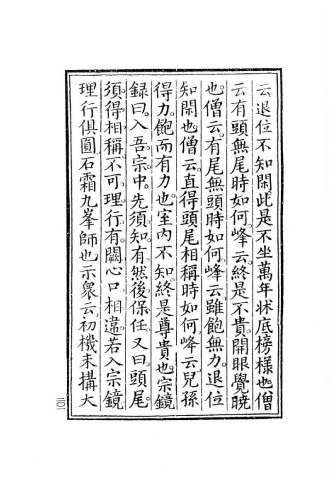 云退位不知閑此是不坐萬年牀底榜樣也僧
云有頭無尾時如何峰云終是不貴開眼覺曉
也僧云有尾無頭時如何峰云雖飽無力退位
知閑也僧云直得頭尾相稱時如何峰云兒孫
得力飽而有力也室內不知終是尊貴也宗鏡
録曰入吾宗中先須知有然後保任又曰頭尾
須得相稱不可理行有闕心口相違若入宗鏡
理行俱圓石霜九峯師也示衆云初機未搆大
三〇一